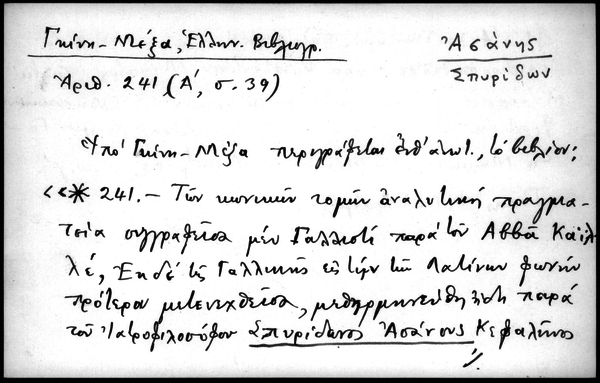 Γκίνη - Μέξα, Ἑλλην. Βιβλιογρ.
Ἀσάνης
Σπυρίδων
Ἀριθ. 241 (Α', σ. 39)
Ὑπό Γκίνη - Μέξα περιγράφεται ἐνθ' ἀνωτ., τό βιβλίον:
«※ 241. - Τῶν κωνικῶν τομῶν ἀναλυτική πραγμα-
τεία συγγραφεῖσα μέν Γαλλιστί παρά τοῦ Ἀββᾶ Καϊλ-
λέ, Ἐκ δέ τῆς Γαλλικῆς εἰς τήν τῶν Λατίνων φωνήν
πρότερον μετενεχθεῖσα, μεθηρμηνεύθη παρά
τοῦ Ἰατροφιλοσόφου Σπυρίδωνος Ἀσάνους Κεφαλῆνος